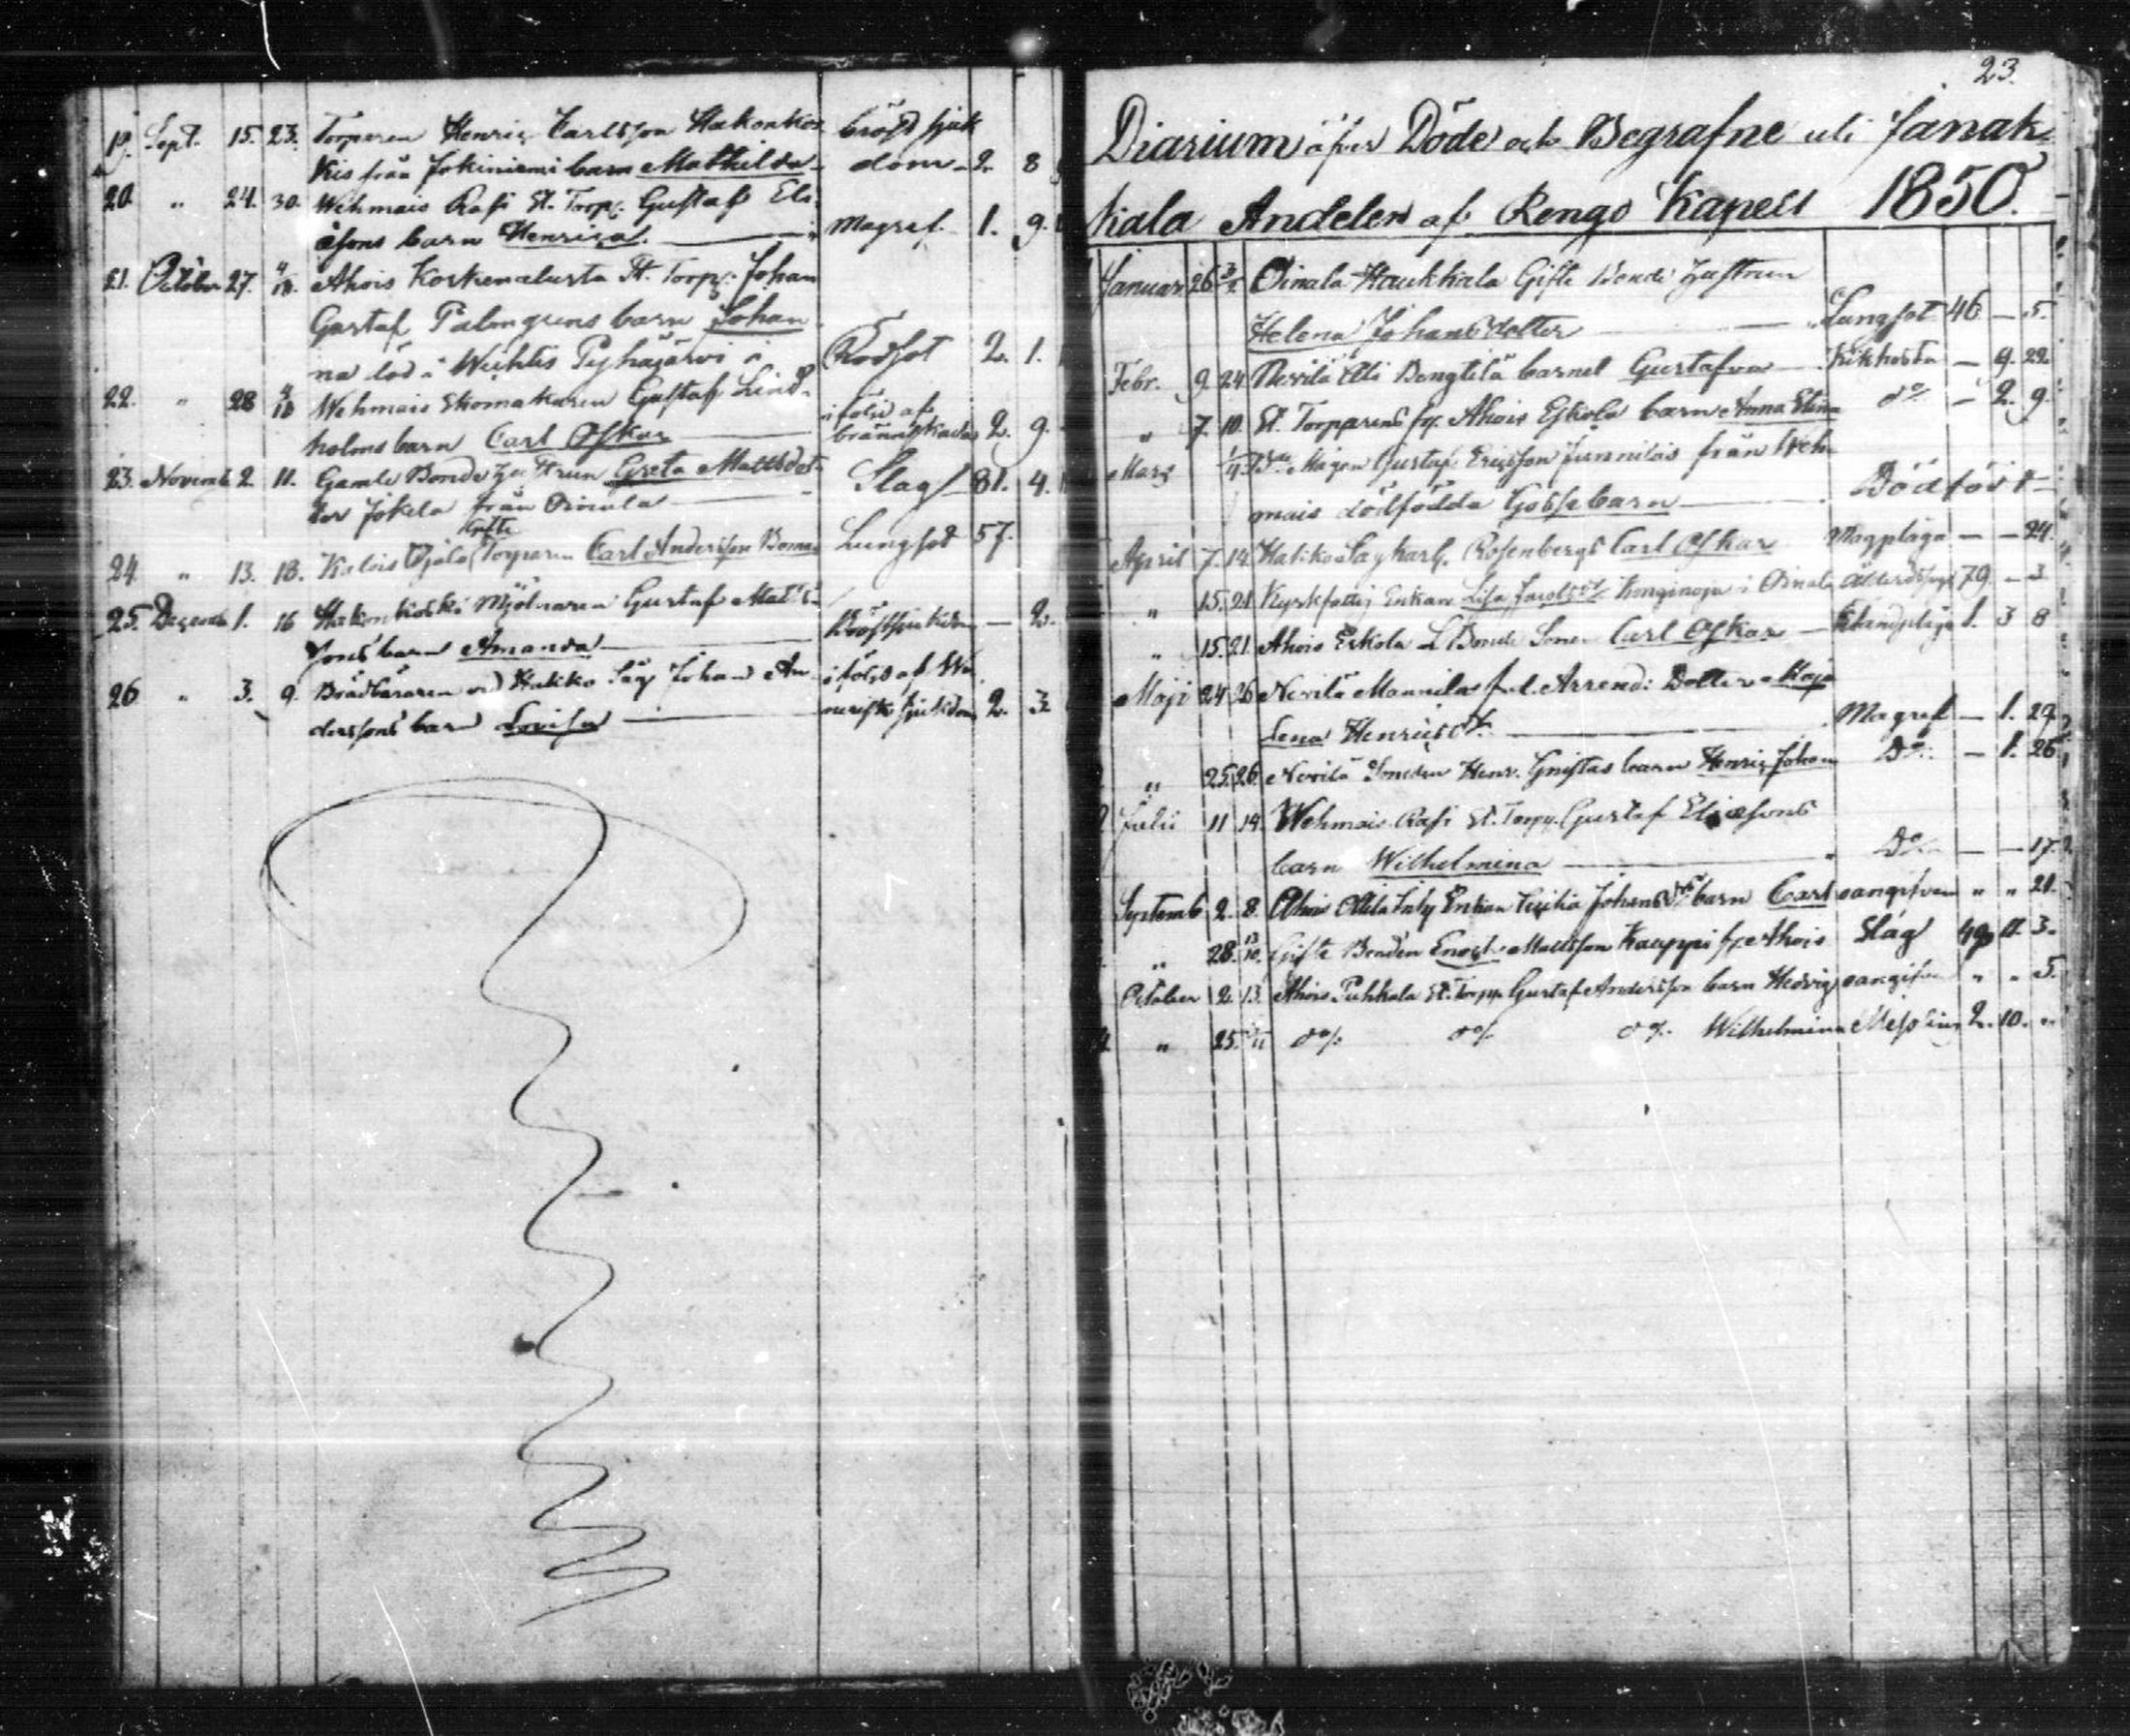 19. Sept. 15. 23. Torparen Henric Carlsson Hakonkos- bröst sjuk
kis från Jokiniemi barn Mathilda - dom - 2. 8
20. " 24. 30. Wehmais Rasi St. Torp. Gustaf Eli-
æsons barn Henrica. Magref. 1. 9.
21. October 27. 4/18. Ahois Koskenalusta St. Torp. Johan
Gustaf Palmgrens barn Johan
na död i Wichtis Pyhäjärvi Rödsot 2. 1.
22. " 28 4/18 Wehmais Skomakaren Gustaf Lind- i följd af
holms barn Carl Oskar brännskada 2. 9.
23. Novemb 2. 11. Gamle Bonde Hustrun Greta Mattsdot- Slag 81. 4.
ter Jokela från Oinala
Gifte
24 " 13. 18. Kalois Ojala Torparen Carl Andersson Lungsot 57.
25. Decemb 1. 16 Hakonkoski Mjölnaren Gustaf Matts-
sons barn Amanda Bröstsjukdom — 2.
26 " 3. 9. Brädbäraren vid Hakko Såg Johan An- i följd af
derssons barn Lovisa sjukdom 2. 3
23.
Diarium öfver Döde och Begrafne uti Janak-
kala Andelen af Rengo Kapell 1850.
Januar 26 3/2 Oinala Haukkala Gifte Bonde Hustrun
Helena Johansdotter Lungsot 46 — 5.
Febr. 9. 24. Nevilä Ali Bengtilä barnet Gustafva Kikhosta — 9. 22.
" 7. 10. St. Torparens fr. Ahois Eskola barn Anna Stina d:o — 2. 9.
Mars Gustaf Ericsson Junnilas från Weh-
mais dödfödda Gossebarn Dödfödt —
April 7. 14. Hakiko Rosenbergs Carl Oskar Magplåga — — 24.
" 15. 21. Kyrkfattig Enkan Lisa i Oinala Ålderdoms 79. — 3
" 15. 21. Ahois Eskola Bonde Sonen Carl Oskar 1. 3 8
Maji 24 26 Nevilä Mannilas Arrend: Dotter Maja
Lena Henricsd:r Magref — 1. 29.
" 25. 26. Nevilä Henr. barn Henric Johan D:o — 1. 26
Julii 11 14. Wehmais Rasi St. Torp. Gustaf Eliæsons
barn Wilhelmina D:o — — 17.
Septemb 2. 8. Ahois Enkan Johansd:rs barn Carl oangifven " " 21.
" 28. 13/10. Gifte Bonden Enoch Mattsson Kauppi fr. Ahois Slag 3.
October 2. 13. Ahois Puhkala St. Torp. Gustaf Andersson barn Hedvig oangifven " " 5.
" 25. d:o d:o d:o Wilhelmina Messling 2. 10. "